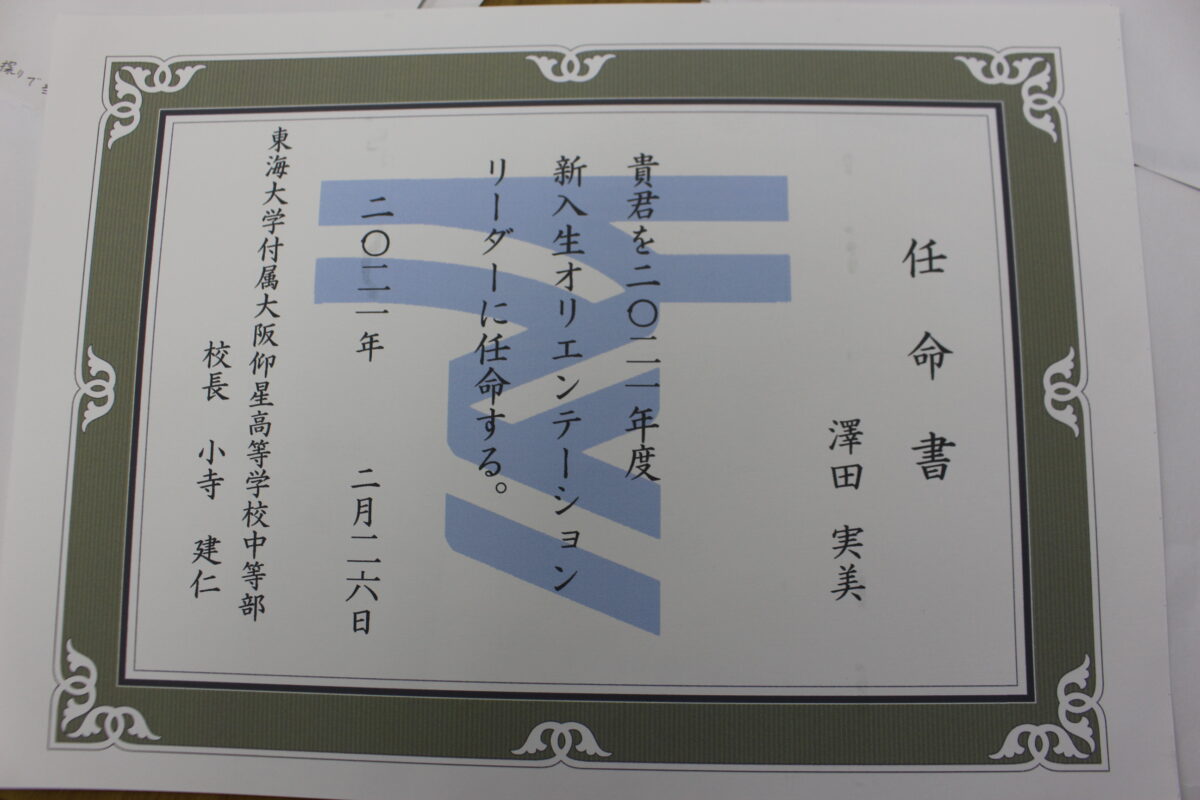 任命書
澤田 実美
貴君を二〇二一年度
新入生オリエンテーション
リーダーに任命する。
二〇二一年 二月二六日
東海大学付属大阪仰星高等学校中等部
校長 小寺 建仁
探りで